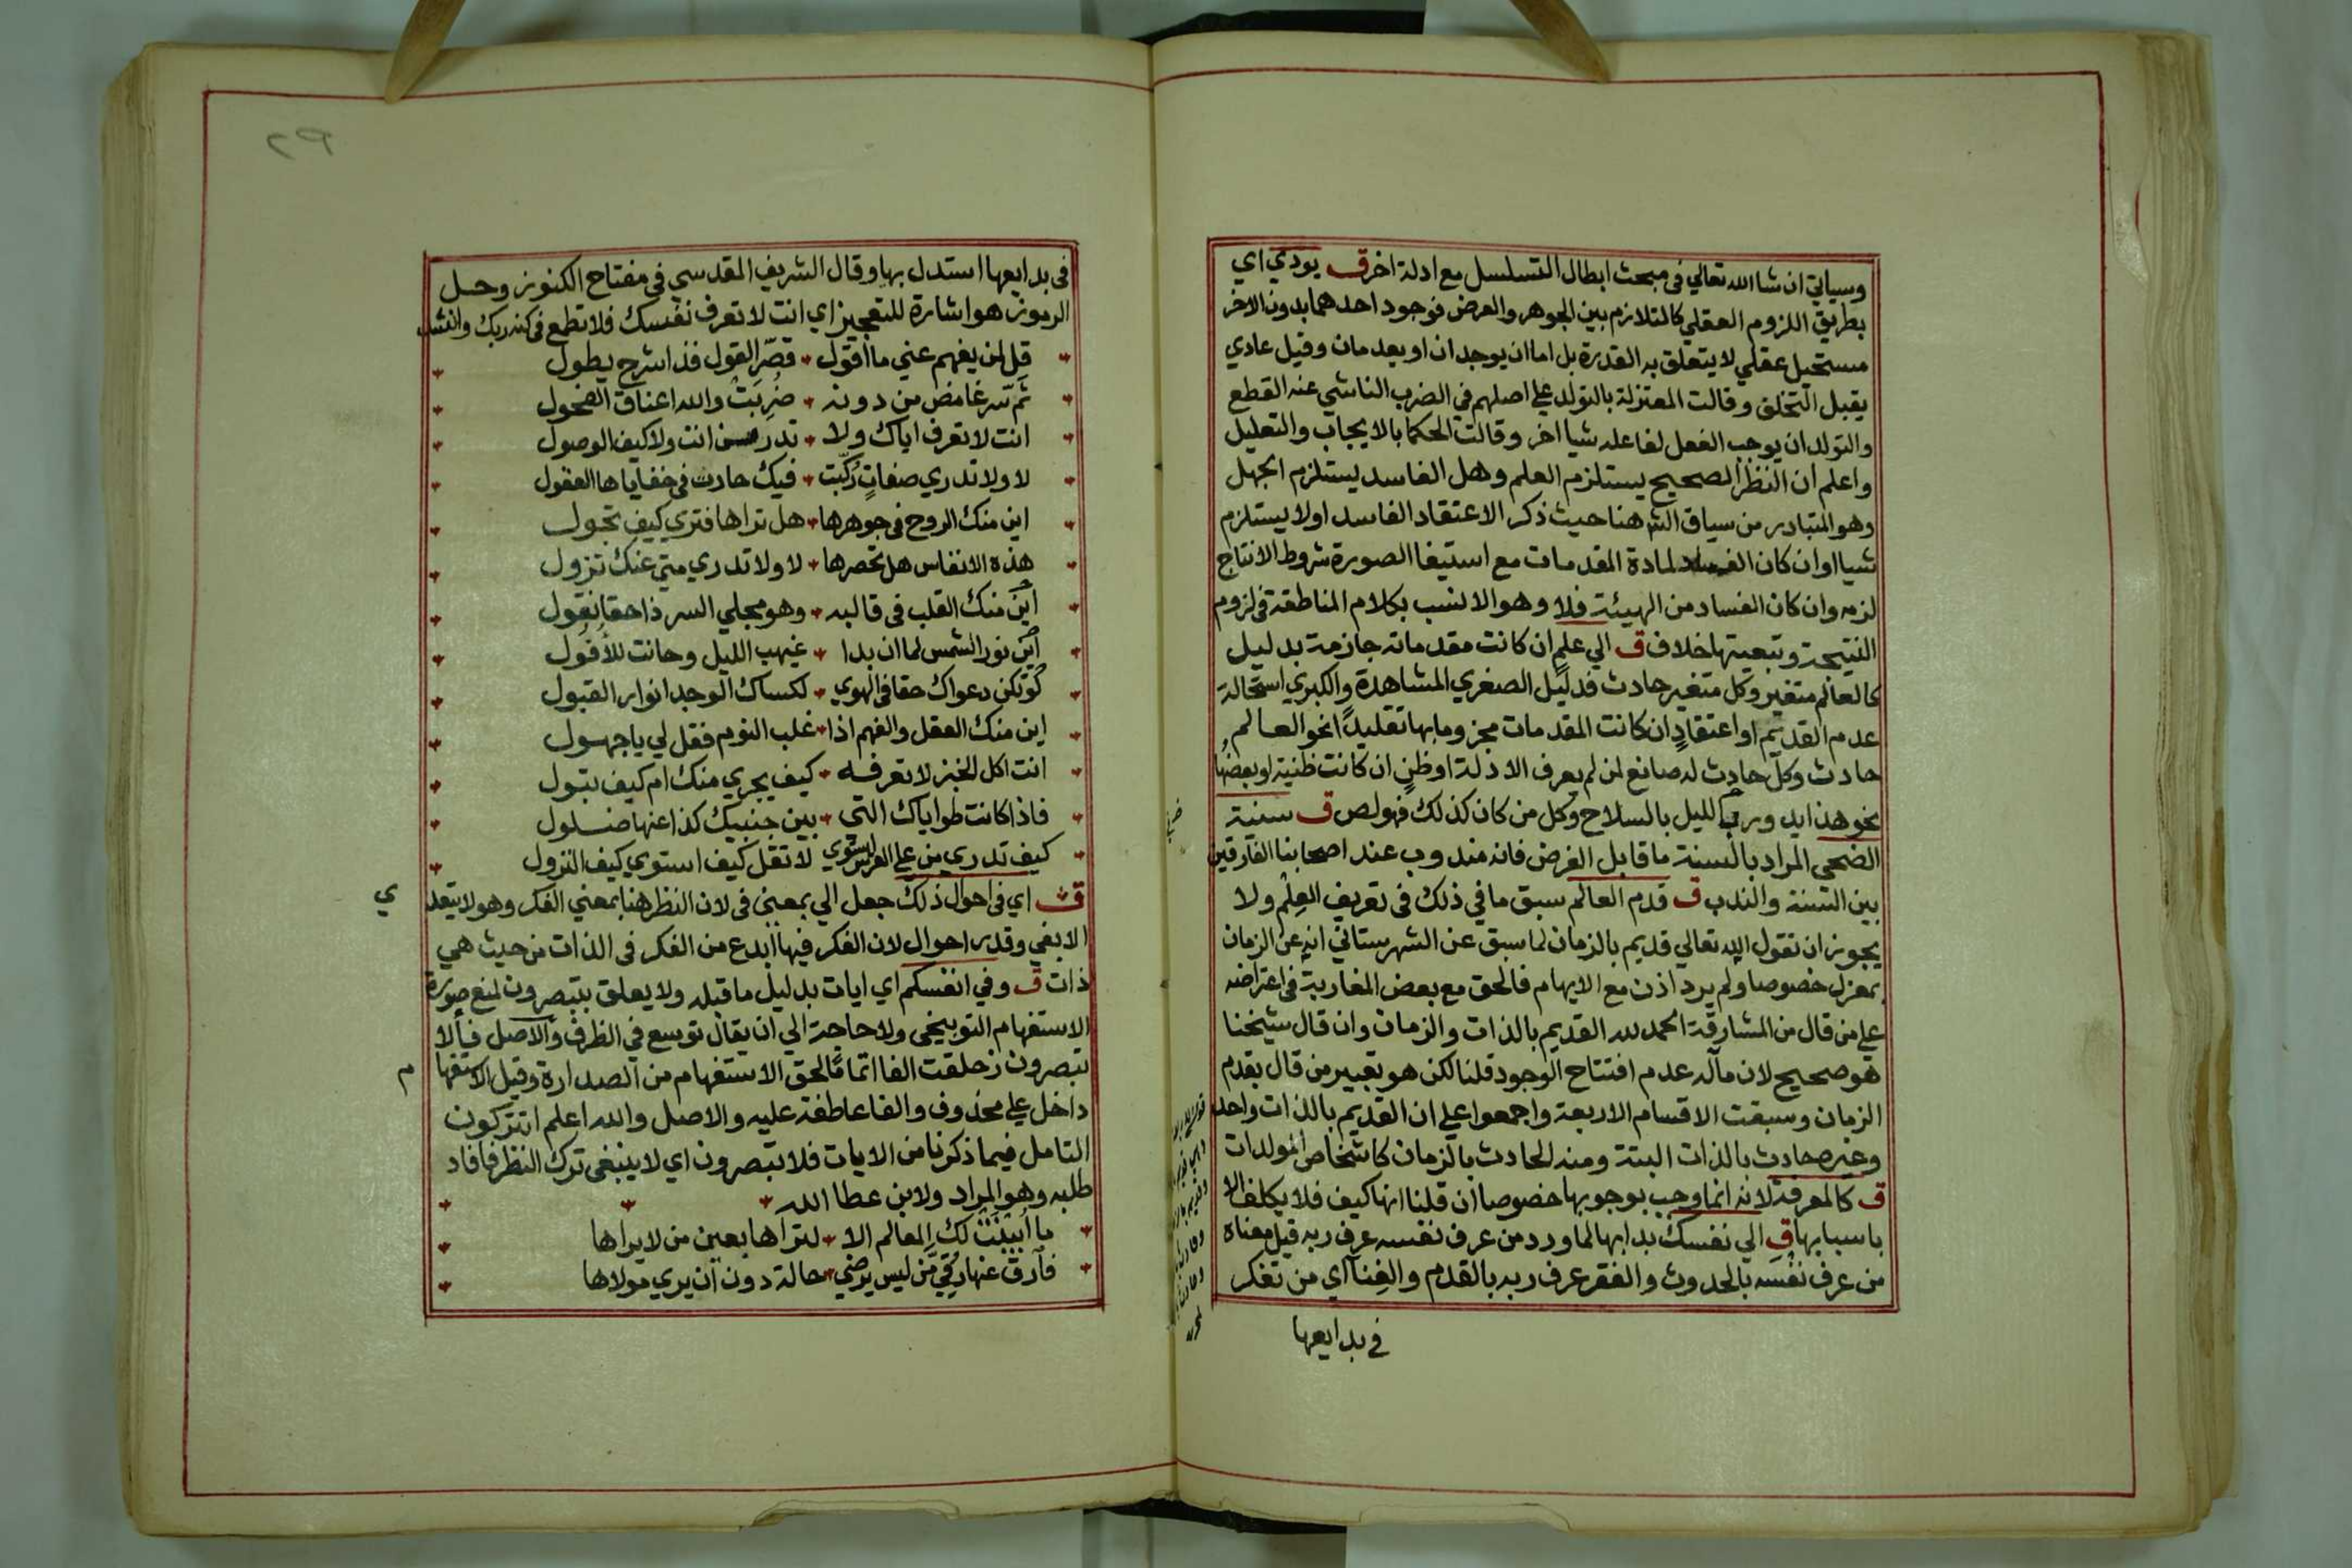 وسياتي ان شا الله تعالي في مبحث ابطال التسلسل مع ادلة اخر ق يودي اي
بطريق اللزوم العقلي كالتلازم بين الجوهر والعرض فوجود احدهما بدون الاخر
مستحيل عقلي لا يتعلق به القدرة بل اما ان يوجدان او يعدمان وقيل عادي
يقبل التخلف وقالت المعتزلة بالتولد علي اصلهم في الضرب الناشي عنه القطع
والتولد ان يوجب الفعل لفاعله شيا اخر وقالت الحكما بالايجاب والتعليل
واعلم ان النظر الصحيح يستلزم العلم وهل الفاسد يستلزم الجهل
وهو المتبادر من سياق الش هنا حيث ذكر الاعتقاد الفاسد او لا يستلزم
شيا او ان كان الفساد لمادة المقدمات مع استيفا الصورة شروط الانتاج
لزمه وان كان الفساد من الهيئة فلا وهو الانسب بكلام المناطقة في لزوم
النتيجة وتبعيتها خلاف ق الي علم ان كانت مقدماته جازمة بدليل
كالعالم متغير وكل متغير حادث فدليل الصغري المشاهدة والكبري استحالة
عدم القديم او اعتقاد ان كانت المقدمات مجزوما بها تقليدا نحو العالم
حادث وكل حادث له صانع لمن لم يعرف الادلة او ظن ان كانت ظنية او بعضها
نحو هذا يدور في الليل بالسلاح وكل من كان كذلك فهو لص ق سنية
الضحي المراد بالسنة ما قابل الفرض فانه مندوب عند اصحابنا الفارقين
بين السنة والندب ق قدم العالم سبق ما في ذلك في تعريف العلم ولا
يجوز ان نقول الله تعالي قديم بالزمان لما سبق عن الشهرستاني انه عن الزمان
بمعزل خصوصا ولم يرد اذن مع الايهام فالحق مع بعض المغاربة في اعتراضه
علي من قال من المشارقة الحمد لله القديم بالذات والزمان وان قال شيخنا
هو صحيح لان مآله عدم افتتاح الوجود قلنا لكن هو تعبير من قال بقدم
الزمان وسبقت الاقسام الاربعة واجمعوا علي ان القديم بالذات واحد
وغيره حادث بالذات البتة ومنه الحادث بالزمان كاشخاص المولدات
ق كالمعرفة لانه انما وجب بوجوبها خصوصا ان قلنا انها كيف فلا يكلف الا
باسبابها ق الي نفسك بدا بها لما ورد من عرف نفسه عرف ربه قيل معناه
من عرف نفسه بالحدوث والفقر عرف ربه بالقدم والغنا اي من تفكر
في بدايعها
٢٩
في بدايعها استدل بها وقال الشريف المقدسي في مفتاح الكنوز وحل
الرموز هو اشارة للتعجيز اي انت لا تعرف نفسك فلا تطمع في كنه ربك وانشد
قل لمن يفهم عني ما اقول قصر القول فذا شرح يطول
ثم سر غامض من دونه ضربت والله اعناق الفحول
انت لا تعرف اياك ولا تدر من انت ولا كيف الوصول
لا ولا تدري صفات ركبت فيك حارت في خفاياها العقول
اين منك الروح في جوهرها هل تراها فتري كيف تجول
هذه الانفاس هل تحصرها لا ولا تدري متي عنك تزول
اين منك القلب في قالبه وهو مجلي السر ذا حقا نقول
اين نور الشمس لما ان بدا غيهب الليل وحانت للأفول
لو تكن دعواك حقا في الهوي لكساك الوجد انوار القبول
اين منك العقل والفهم اذا غلب النوم فقل لي يا جهول
انت اكل الخبز لا تعرفه كيف يجري منك ام كيف تبول
فاذا كانت طواياك التي بين جنبيك كذا عنها ضلول
كيف تدري من علي العرش استوي لا تقل كيف استوي كيف النزول
ق اي في احوال ذلك جعل الي بمعني في لان النظر هنا بمعني الفكر وهو لا يتعد
ي
الا بفي وقدر احوال لان الفكر فيها ابدع من الفكر في الذات من حيث هي
ذات ق وفي انفسكم اي ايات بدليل ما قبله ولا يعلق بتبصرون لمنع صورة
الاستفهام التوبيخي ولا حاجة الي ان يقال توسع في الظرف والاصل فألا
تبصرون زحلقت الفا اتماما لحق الاستفهام من الصدارة وقيل الاستفها
م
داخل علي محذوف والفا عاطفة عليه والاصل والله اعلم اتتركون
التامل فيما ذكرنا من الايات فلا تبصرون اي لا ينبغي ترك النظر فافاد
طلبه وهو المراد ولابن عطا الله
ما أبينت لك المعالم الا لتراها بعين من لا يراها
فارق عنها رقي من ليس يرضي حالة دون ان يري مولاها